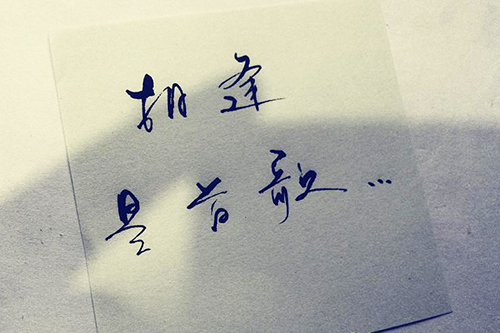 相逢
是首歌...